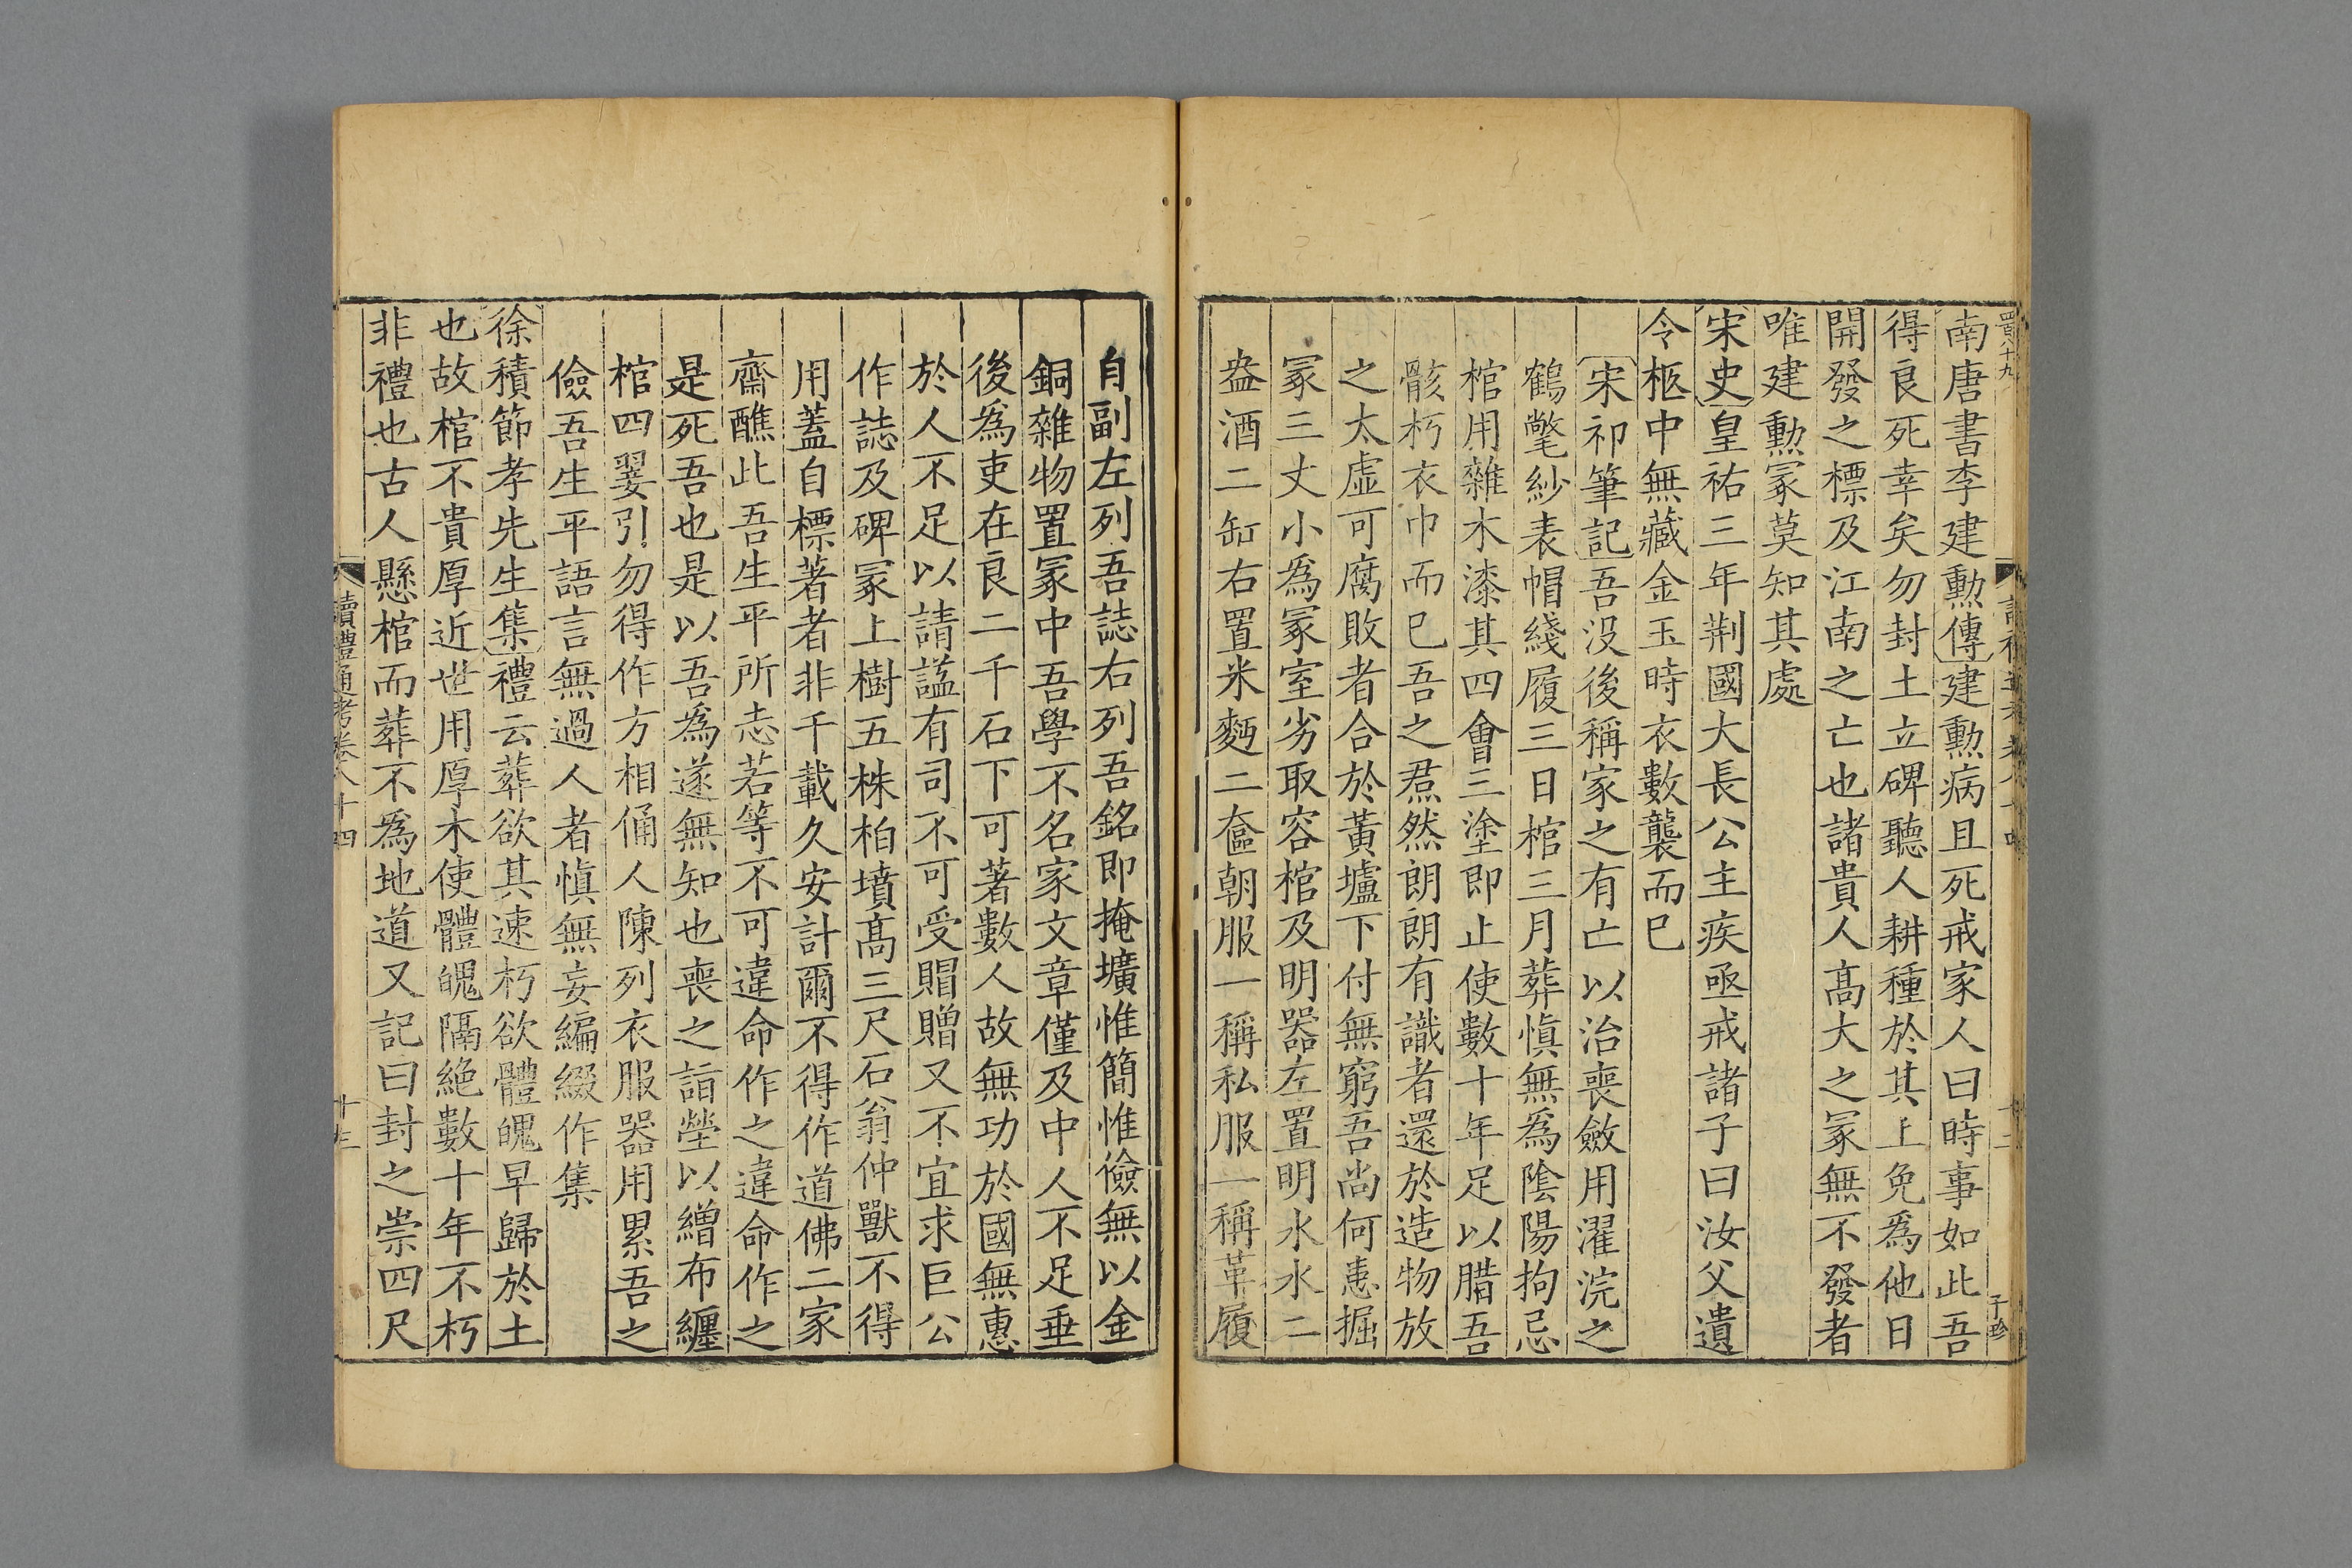 南唐書李建勲傳建勲病且死戒家人曰時事如此吾
得良死幸矣勿封土立碑聽人耕種於其上免爲他日
開發之標及江南之亡也諸貴人髙大之冡無不發者
唯建勲冡莫知其處
宋史皇祐三年荆國大長公主疾亟戒諸子曰汝父遺
令柩中無藏金玉時衣數襲而已
宋祁筆記吾没後稱家之有亡以治喪斂用濯浣之
鶴氅紗表帽綫履三日棺三月葬愼無爲陰陽拘忌
棺用雜木漆其四會三塗即止使數十年足以腊吾
骸朽衣巾而已吾之焄然朗朗有識者還於造物放
之太虛可腐敗者合於黃壚下付無窮吾尚何患掘
冡三丈小爲冡室劣取容棺及明器左置明水水二
盎酒二缶右置米麪二奩朝服一稱私服一稱革履
自副左列吾誌右列吾銘即掩壙惟簡惟儉無以金
銅雜物置冡中吾學不名家文章僅及中人不足垂
後爲吏在良二千石下可著數人故無功於國無惠
於人不足以請諡有司不可受賵贈又不宜求巨公
作誌及碑冡上樹五株柏墳髙三尺石翁仲獸不得
用蓋自標著者非千載久安計爾不得作道佛二家
齋醮此吾生平所志若等不可違命作之違命作之
是死吾也是以吾爲遂無知也喪之詣塋以繒布纏
棺四翣引勿得作方相俑人陳列衣服器用累吾之
儉吾生平語言無過人者愼無妄編綴作集
徐積節孝先生集禮云葬欲其速朽欲體魄早歸於土
也故棺不貴厚近世用厚木使體魄隔絶數十年不朽
非禮也古人懸棺而葬不爲地道又記曰封之崇四尺
讀禮通考卷八十四
十三